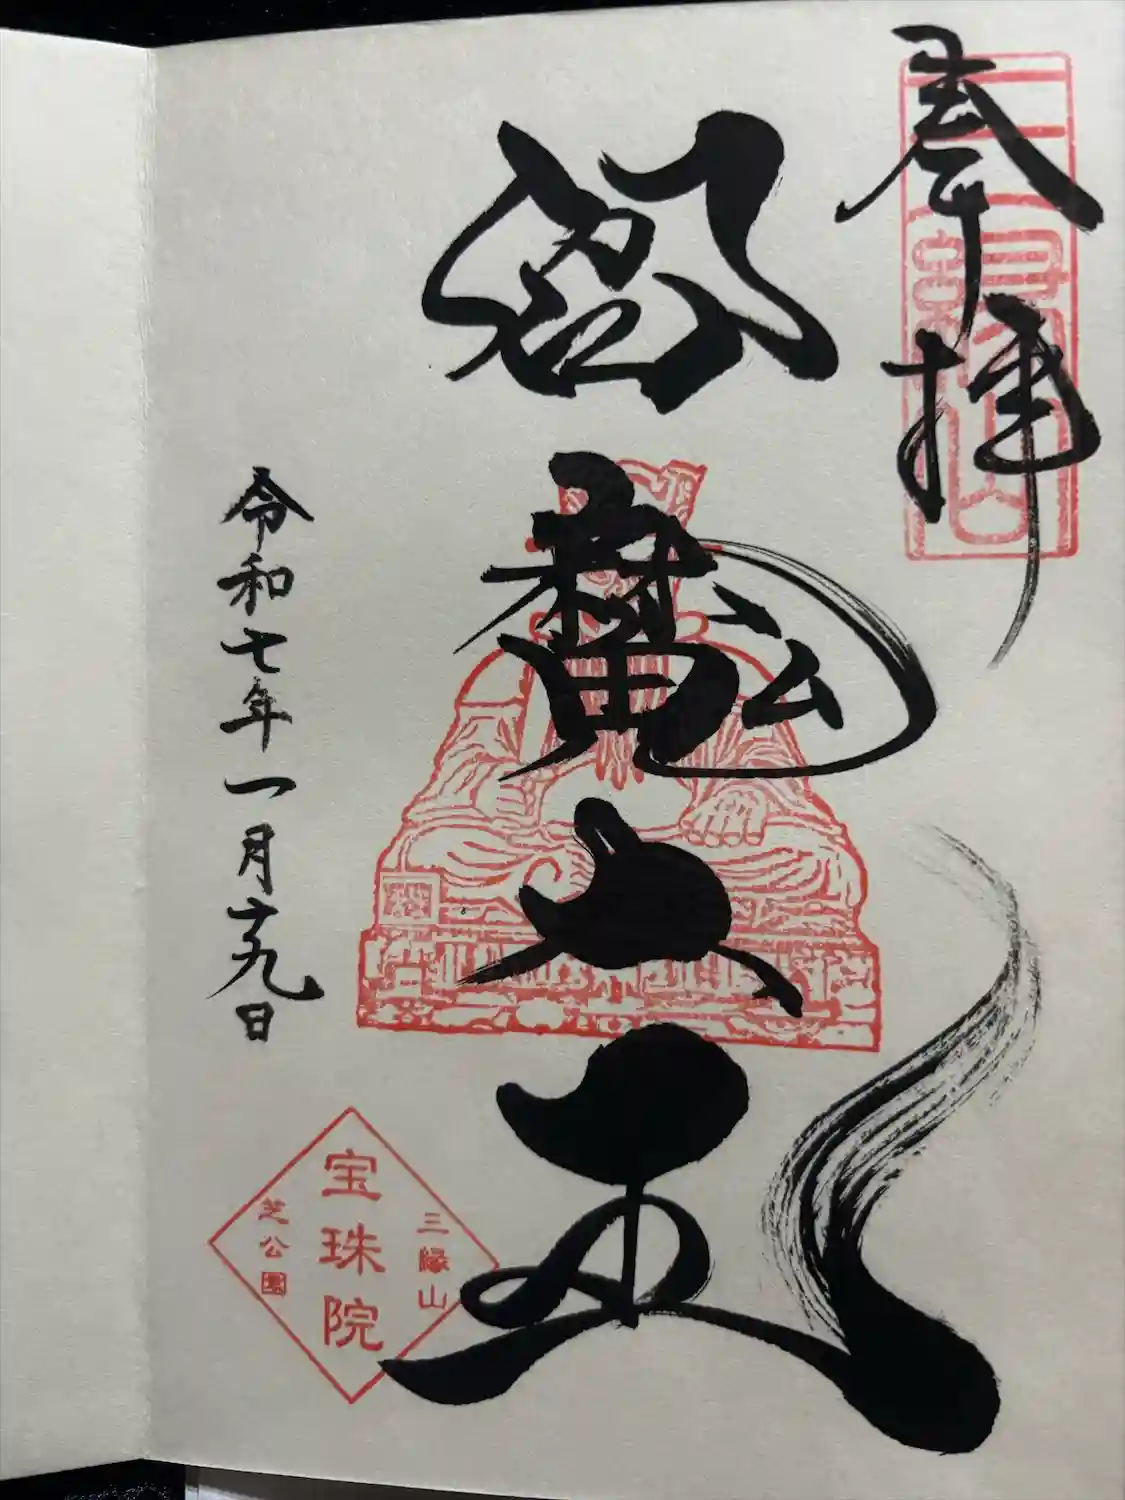 奉拝
三縁山
閻魔大王
令和七年一月十九日
三縁山
宝珠院
芝公園